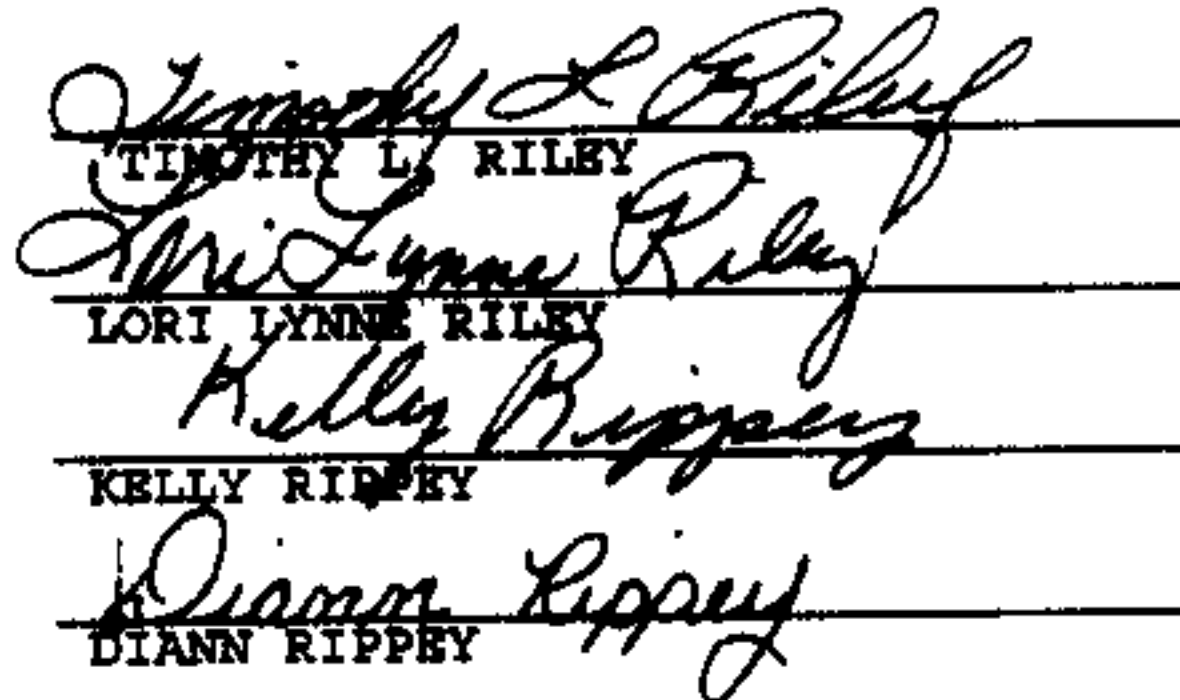 Timothy L Riley
TIMOTHY L. RILEY
Lori Lynne Riley
LORI LYNNE RILEY
Kelly Rippey
KELLY RIPPEY
Diann Rippey
DIANN RIPPEY